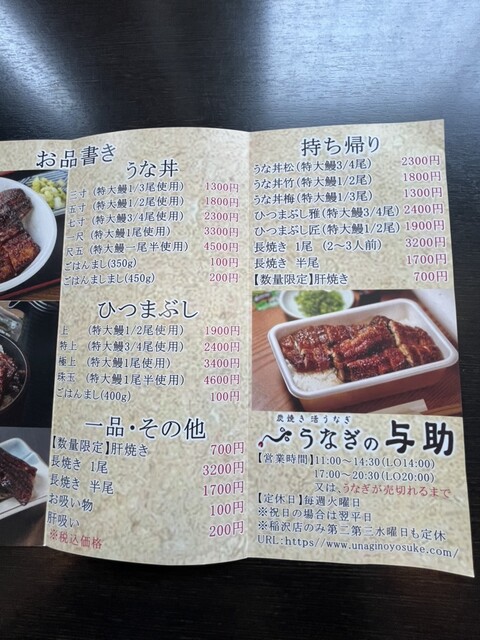 お品書き
うな丼
三寸 (特大鰻1/3尾使用) 1300円
五寸 (特大鰻1/2尾使用) 1800円
七寸 (特大鰻3/4尾使用) 2300円
一尺 (特大鰻1尾使用) 3300円
尺五 (特大鰻一尾半使用) 4500円
ごはんまし(350g) 100円
ごはんましまし(450g) 200円
ひつまぶし
上 (特大鰻1/2尾使用) 1900円
特上 (特大鰻3/4尾使用) 2400円
極上 (特大鰻1尾使用) 3400円
珠玉 (特大鰻1尾半使用) 4600円
ごはんまし(400g) 100円
一品・その他
【数量限定】肝焼き 700円
長焼き 1尾 3200円
長焼き 半尾 1700円
お吸い物 100円
肝吸い 200円
※税込価格
持ち帰り
うな丼松(特大鰻3/4尾) 2300円
うな丼竹(特大鰻1/2尾) 1800円
うな丼梅(特大鰻1/3尾) 1300円
ひつまぶし雅(特大鰻3/4尾) 2400円
ひつまぶし匠(特大鰻1/2尾) 1900円
長焼き 1尾 (2〜3人前) 3200円
長焼き 半尾 1700円
【数量限定】肝焼き 700円
炭焼き 活うなぎ
うなぎの与助
【営業時間】11:00〜14:30(LO14:00)
17:00〜20:30(LO20:00)
又は、うなぎが売切れるまで
【定休日】毎週火曜日
※祝日の場合は翌平日
※稲沢店のみ第二第三水曜日も定休
URL:https//www.unaginoyosuke.com/